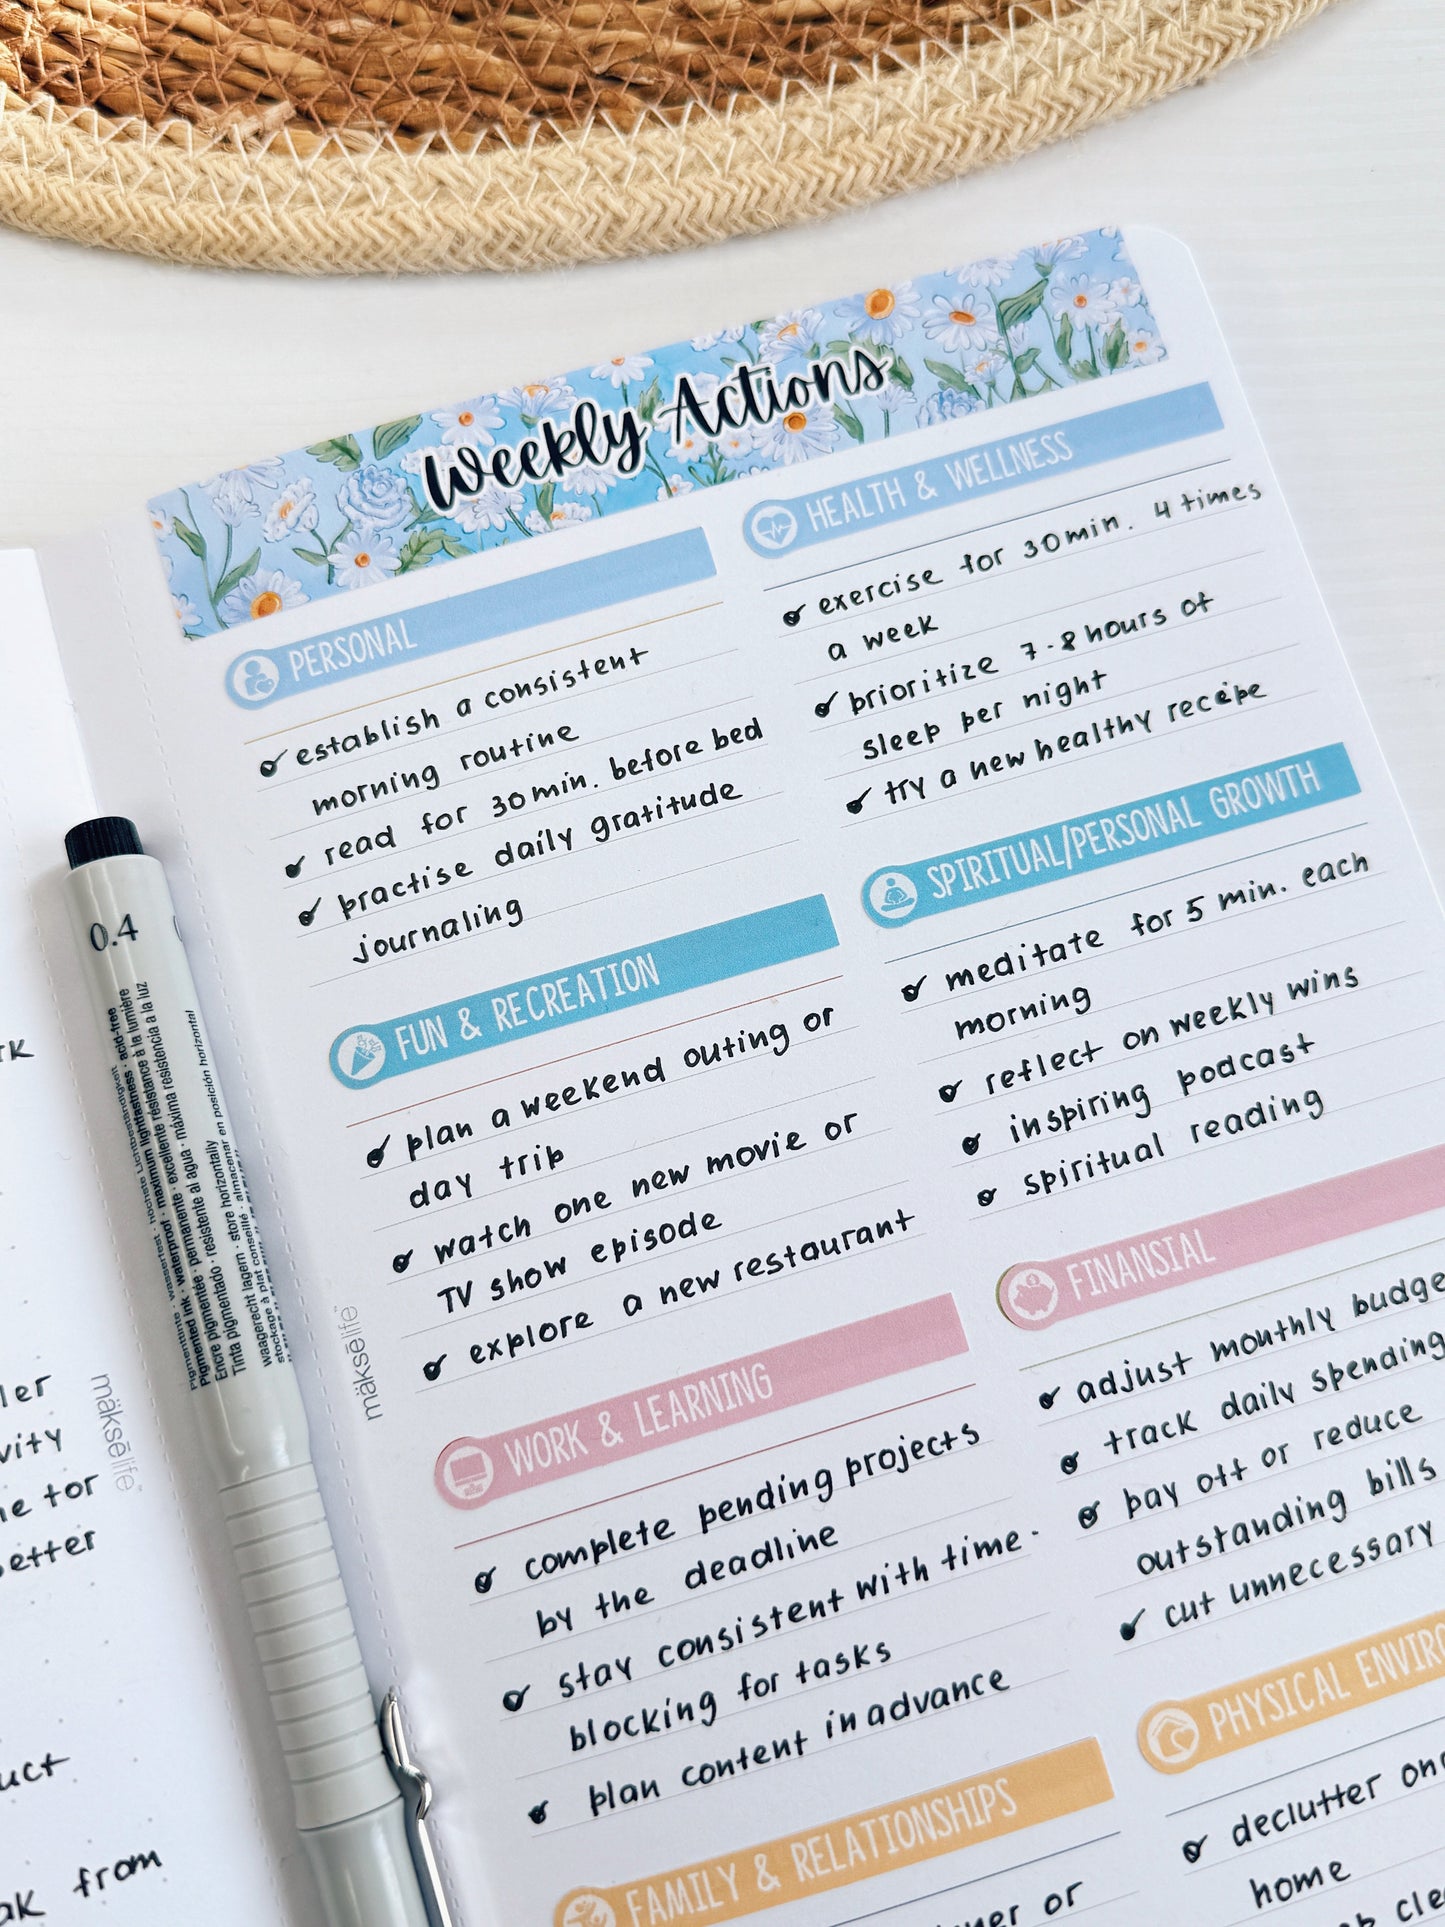 Weekly Actions
PERSONAL
establish a consistent
morning routine
read for 30 min. before bed
practise daily gratitude
journaling
HEALTH & WELLNESS
exercise for 30 min. 4 times
a week
prioritize 7-8 hours of
sleep per night
try a new healthy recipe
FUN & RECREATION
plan a weekend outing or
day trip
watch one new movie or
TV show episode
explore a new restaurant
SPIRITUAL/PERSONAL GROWTH
meditate for 5 min. each
morning
reflect on weekly wins
inspiring podcast
spiritual reading
WORK & LEARNING
complete pending projects
by the deadline
stay consistent with time-
blocking for tasks
plan content in advance
FINANSIAL
adjust monthly
track daily spending
pay off or reduce
outstanding bills
cut unnecessary
FAMILY & RELATIONSHIPS
or
PHYSICAL
declutter
home
mäksēlife™
mäksēlife™
0.4
Pigmented ink · waterproof · maximum lightfastness · acid-free
Encre pigmentée · permanente · excellente résistance à la lumière
Tinta pigmentado · resistente al agua · máxima resistencia a la luz
waagerecht lagern · store horizontally
stockage à plat conseillé · almacenar en posición horizontal
from